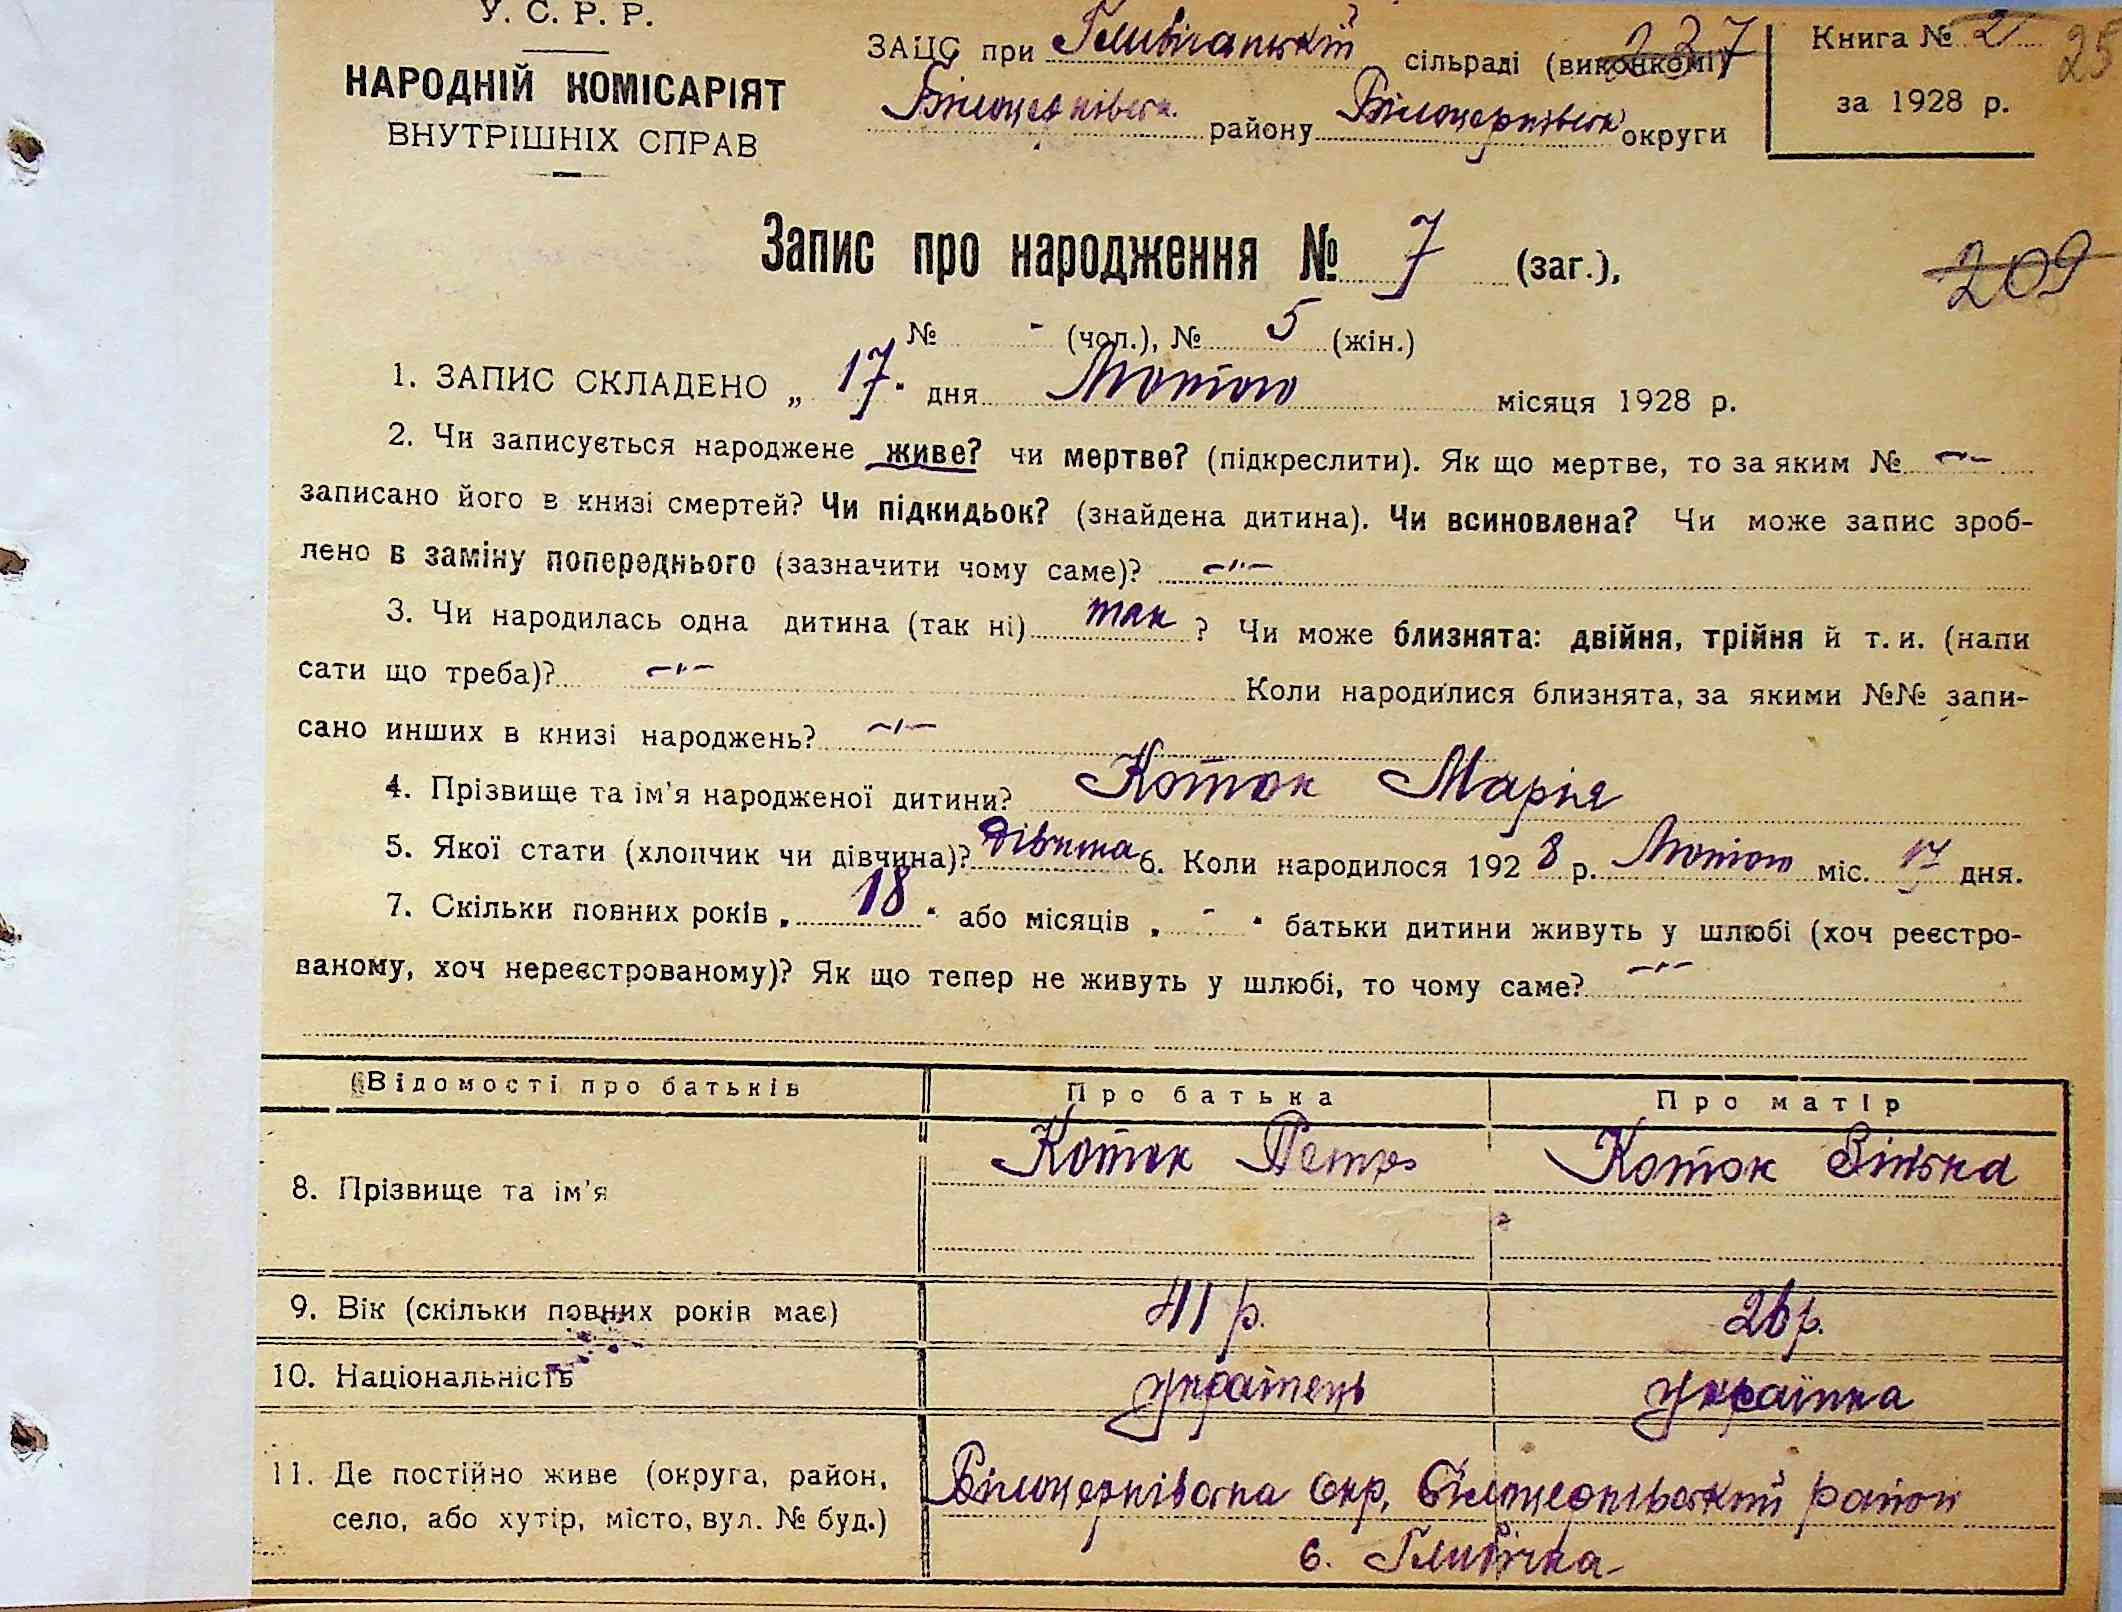 У. С. Р. Р.
НАРОДНІЙ КОМІСАРІЯТ
ВНУТРІШНІХ СПРАВ
ЗАЦС при Глибічанській сільраді (виконкомі) 237
Білоцерківськ. району Білоцерківськ округи
Книга № 2
за 1928 р.
25
Запис про народження № 7 (заг.),
209
№ - (чол.), № 5 (жін.)
1. ЗАПИС СКЛАДЕНО „ 17. дня Лютого місяця 1928 р.
2. Чи записується народжене живе? чи мертве? (підкреслити). Як що мертве, то за яким № —〃—
записано його в книзі смертей? Чи підкидьок? (знайдена дитина). Чи всиновлена? Чи може запис зроб-
лено в заміну попереднього (зазначити чому саме)? —〃—
3. Чи народилась одна дитина (так ні) так ? Чи може близнята: двійня, трійня й т. и. (напи
сати що треба)? —〃— Коли народилися близнята, за якими №№ запи-
сано инших в книзі народжень? —〃—
4. Прізвище та ім'я народженої дитини? Коток Марія
5. Якої стати (хлопчик чи дівчина)? дівчина 6. Коли народилося 1928 р. Лютого міс. 17 дня.
7. Скільки повних років „ 18 " або місяців „ - " батьки дитини живуть у шлюбі (хоч реєстро-
ваному, хоч нереєстрованому)? Як що тепер не живуть у шлюбі, то чому саме? —〃—
Відомості про батьків Про батька Про матір
8. Прізвище та ім'я Коток Петро Коток
9. Вік (скільки повних років має) 41 р. 26 р.
10. Національність Українець Українка
11. Де постійно живе (округа, район, Білоцерківська окр. Білоцерківський район
село, або хутір, місто, вул. № буд.) с. Глибічка